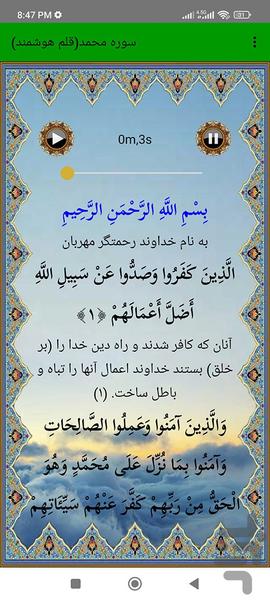 8:47 PM
سوره محمد(قلم هوشمند)
0m,3s
بِسْمِ اللَّهِ الرَّحْمَنِ الرَّحِيمِ
به نام خداوند رحمتگر مهربان
الَّذِينَ كَفَرُوا وَصَدُّوا عَنْ سَبِيلِ اللَّهِ
أَضَلَّ أَعْمَالَهُمْ ﴿۱﴾
آنان که کافر شدند و راه دین خدا را (بر
خلق) بستند خداوند اعمال آنها را تباه و
باطل ساخت. (۱)
وَالَّذِينَ آمَنُوا وَعَمِلُوا الصَّالِحَاتِ
وَآمَنُوا بِمَا نُزِّلَ عَلَى مُحَمَّدٍ وَهُوَ
الْحَقُّ مِنْ رَبِّهِمْ كَفَّرَ عَنْهُمْ سَيِّئَاتِهِمْ